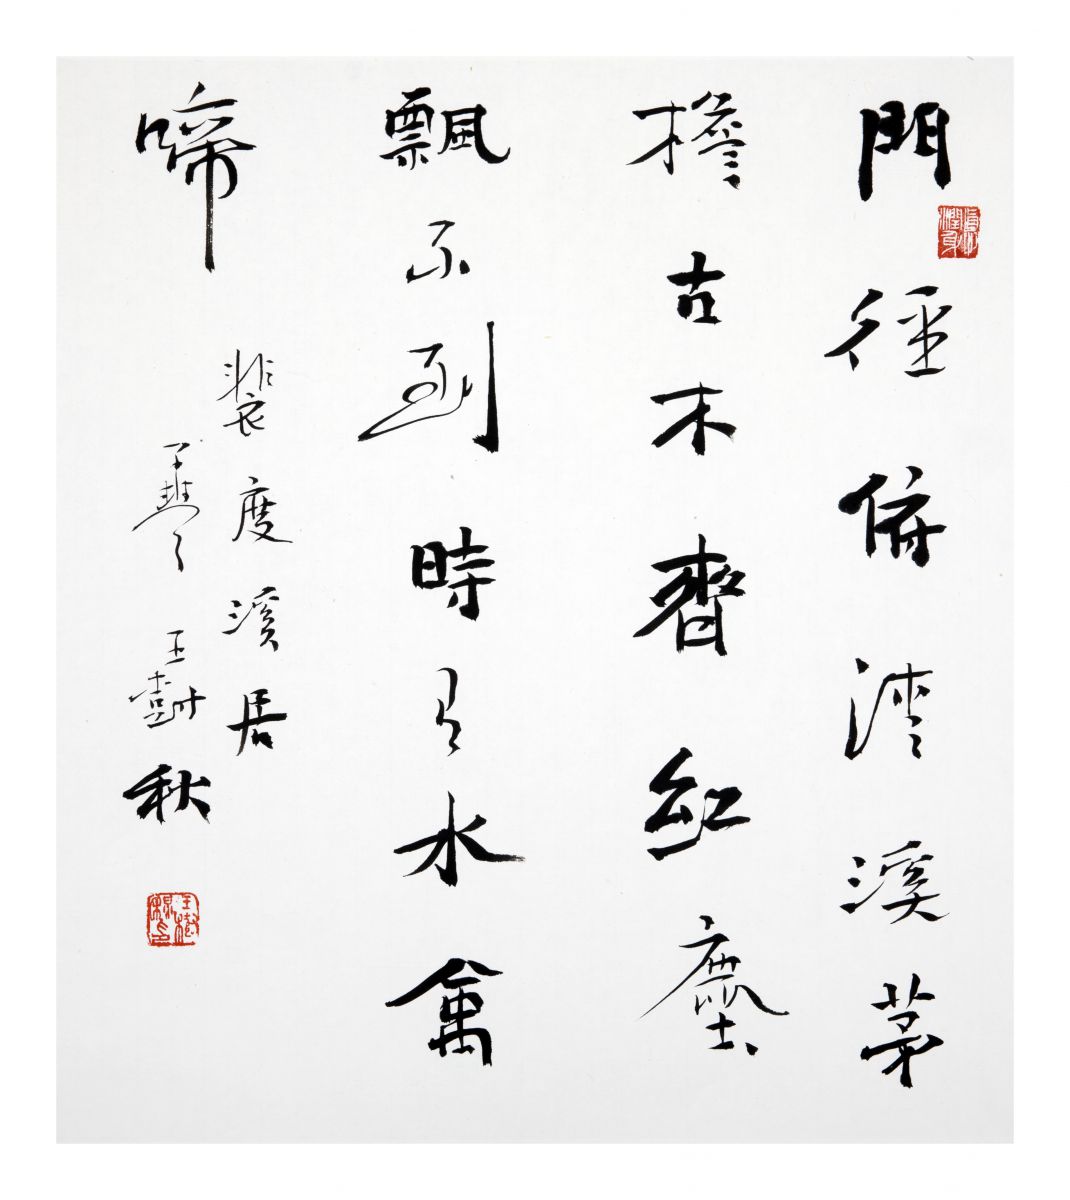 門徑俯清溪茅
檐古木齊紅塵
飄不到時有水禽
啼
裴度溪居
王樹秋